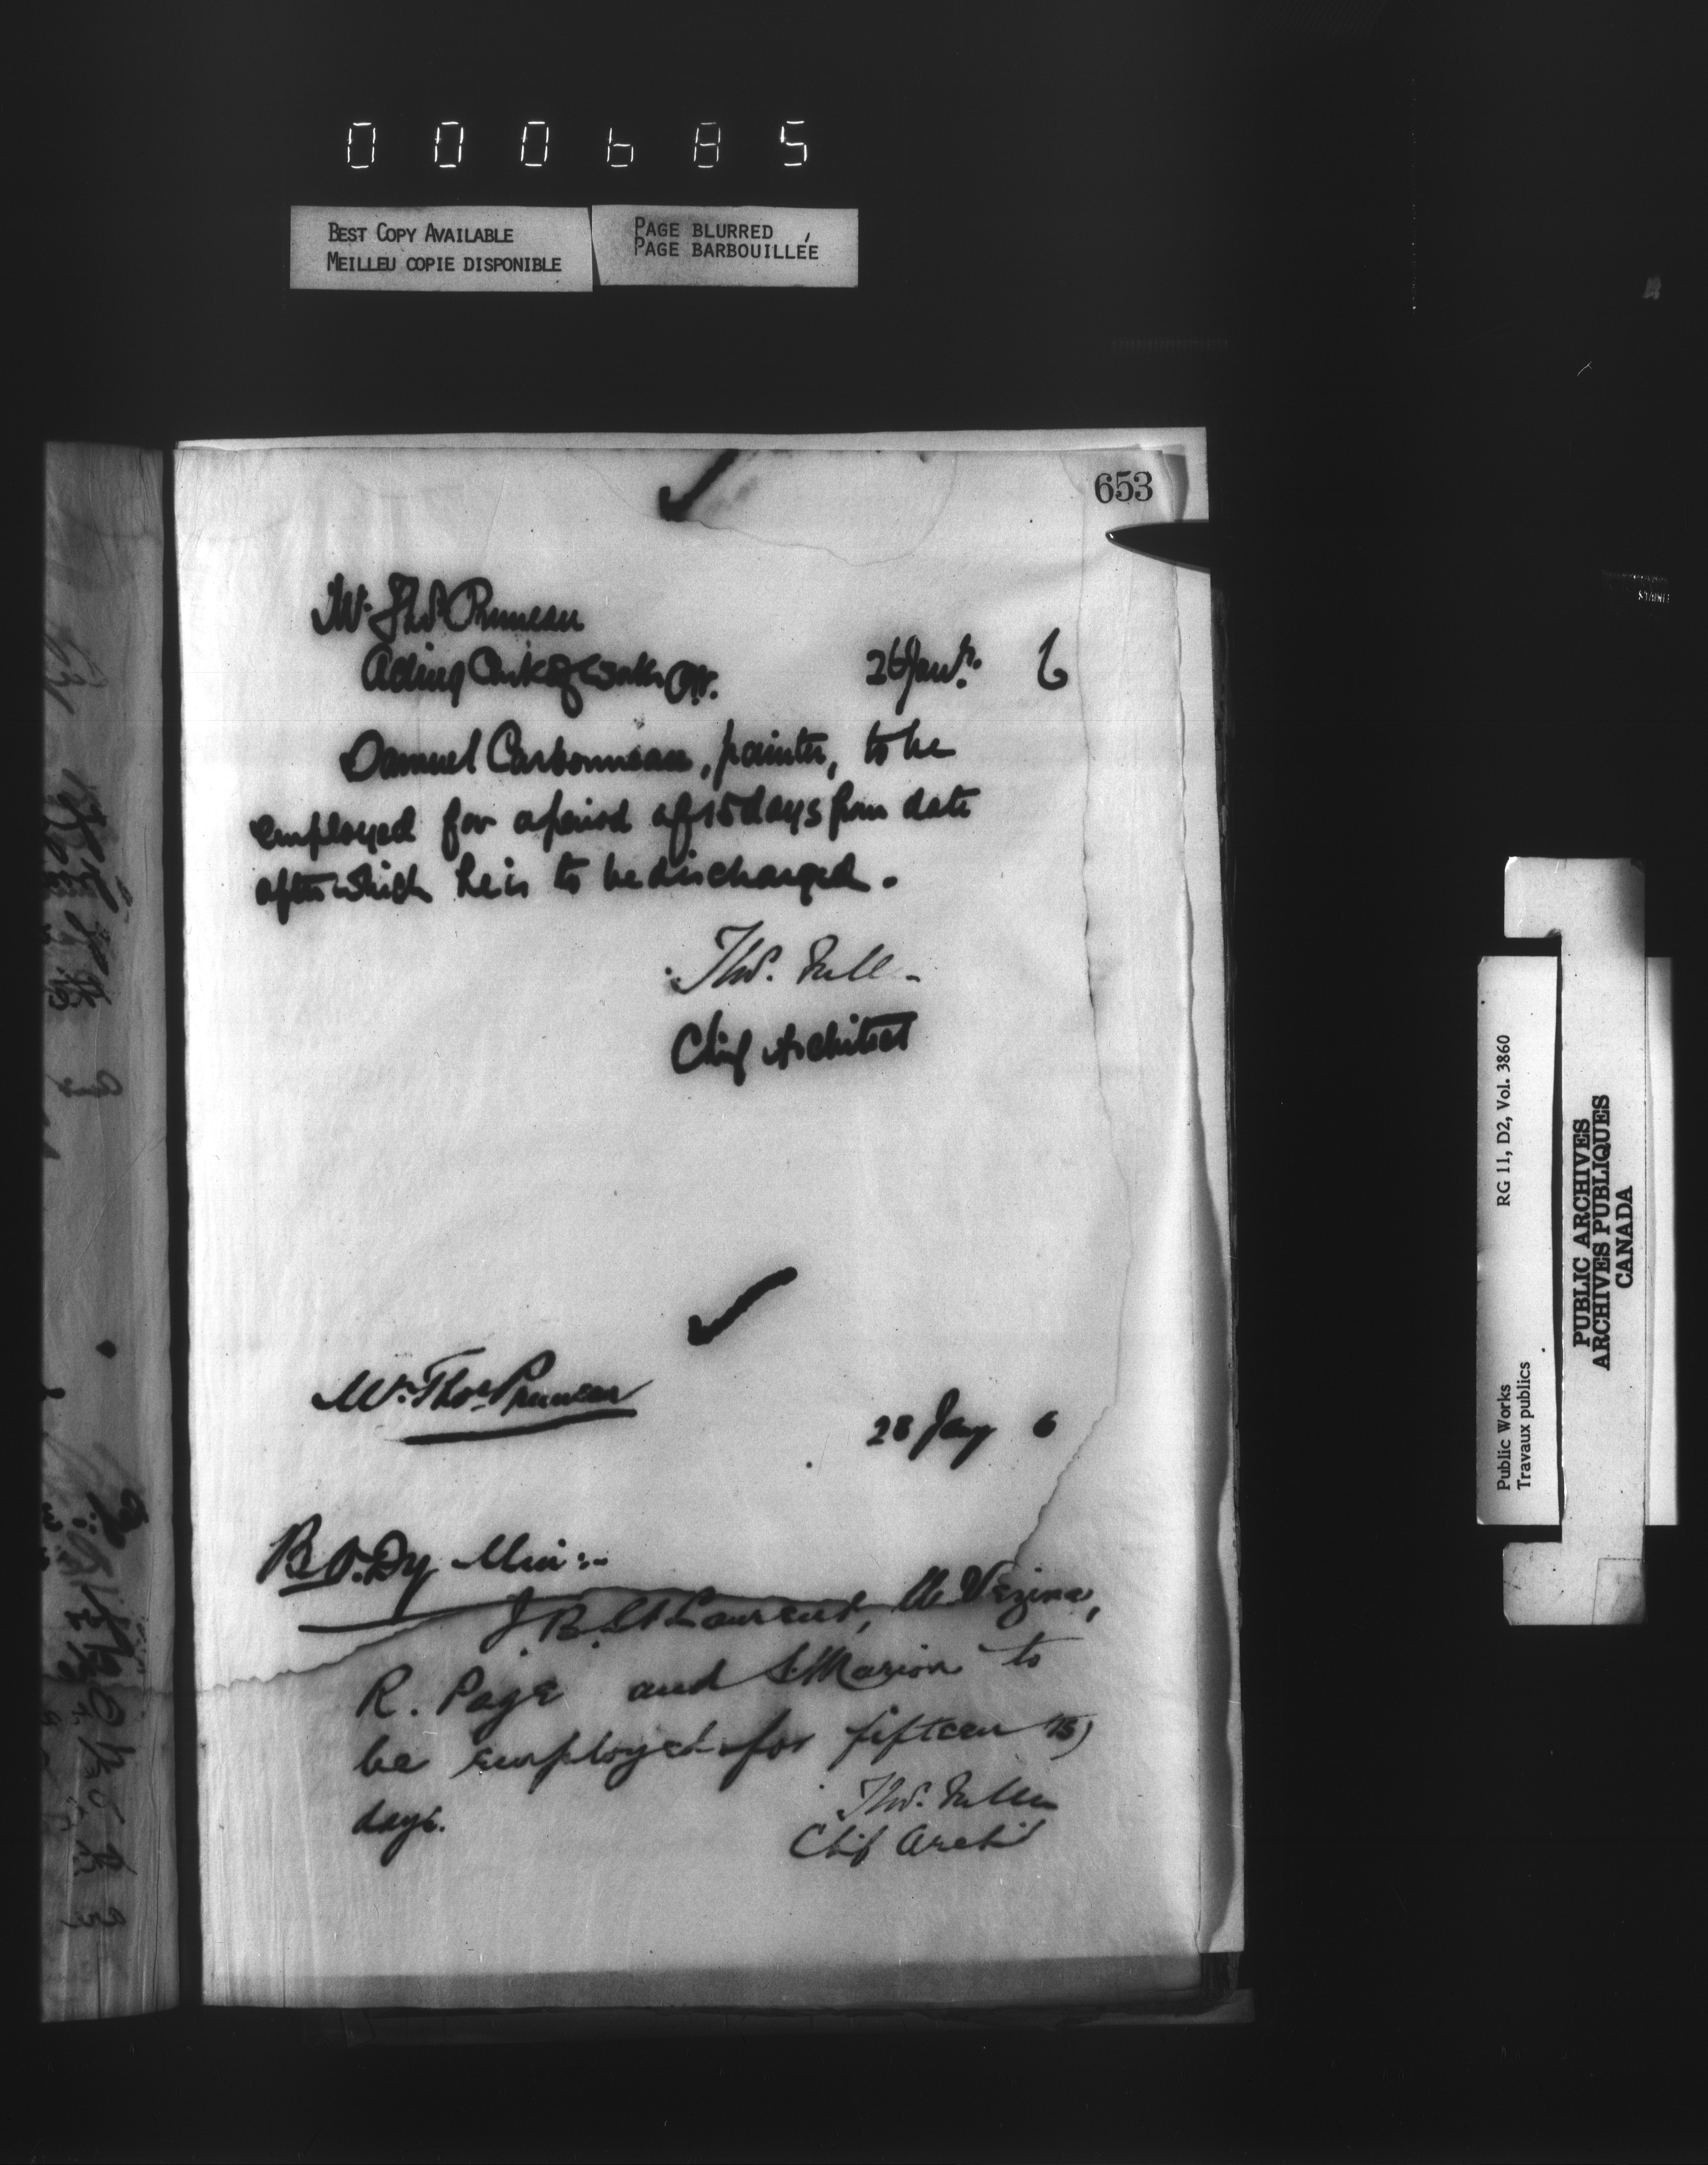 000685
BEST COPY AVAILABLE
MEILLEU COPIE DISPONIBLE
PAGE BLURRED
PAGE BARBOUILLÉE
653
Mr. Thos Pruneau
Acting Clerk of Works Ott.
26 Jany. 6
Samuel Carbonneau, painter, to be
employed for a period of 15 days from date
after which he is to be discharged.
Thos. Fuller
Chief Architect
Mr. Thos Pruneau
28 Jany 6
B. O. Dy Min:-
J. B. St Laurent, Vezina,
R. Page and S. Marion to
be employed for fifteen (15)
days.
Thos. Fuller
Chif Archt
RG 11, D2, Vol. 3860
Public Works
Travaux publics
PUBLIC ARCHIVES
ARCHIVES PUBLIQUES
CANADA